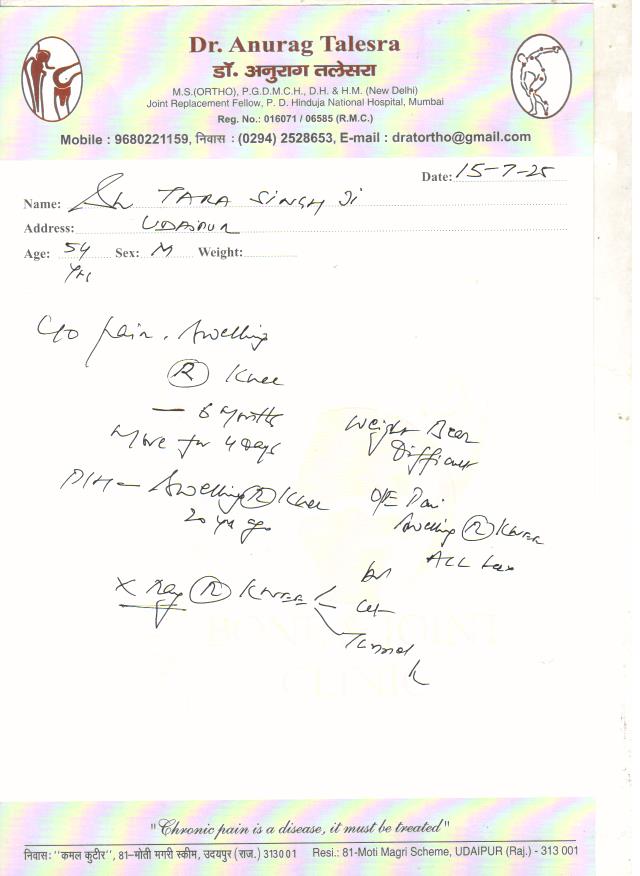 Dr. Anurag Talesra
डॉ. अनुराग तलेसरा
M.S.(ORTHO), P.G.D.M.C.H., D.H. & H.M. (New Delhi)
Joint Replacement Fellow, P. D. Hinduja National Hospital, Mumbai
Reg. No.: 016071 / 06585 (R.M.C.)
Mobile : 9680221159, निवास : (0294) 2528653, E-mail : dratortho@gmail.com
Date: 15-7-25
Name: Sh TARA SINGH Ji
Address: UDAIPUR
Age: 54 Yrs Sex: M Weight:
C/o pain. Swelling
(R) Knee
— 6 Months
More for 4 Days
Weight Bear
Difficult
P/H — Swelling (R) Knee
20 yr ago
O/E Pain
Swelling (R) Knee
ACL Lax
X Ray (R) KNEE
AP
Lat
Tunnel
BONE & JOINT
CLINIC
"Chronic pain is a disease, it must be treated"
निवास: "कमल कुटीर", 81–मोती मगरी स्कीम, उदयपुर (राज.) 313001 Resi.: 81-Moti Magri Scheme, UDAIPUR (Raj.) - 313 001